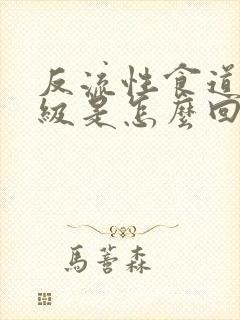 反流性食道
級是怎麼回
馬蕾森